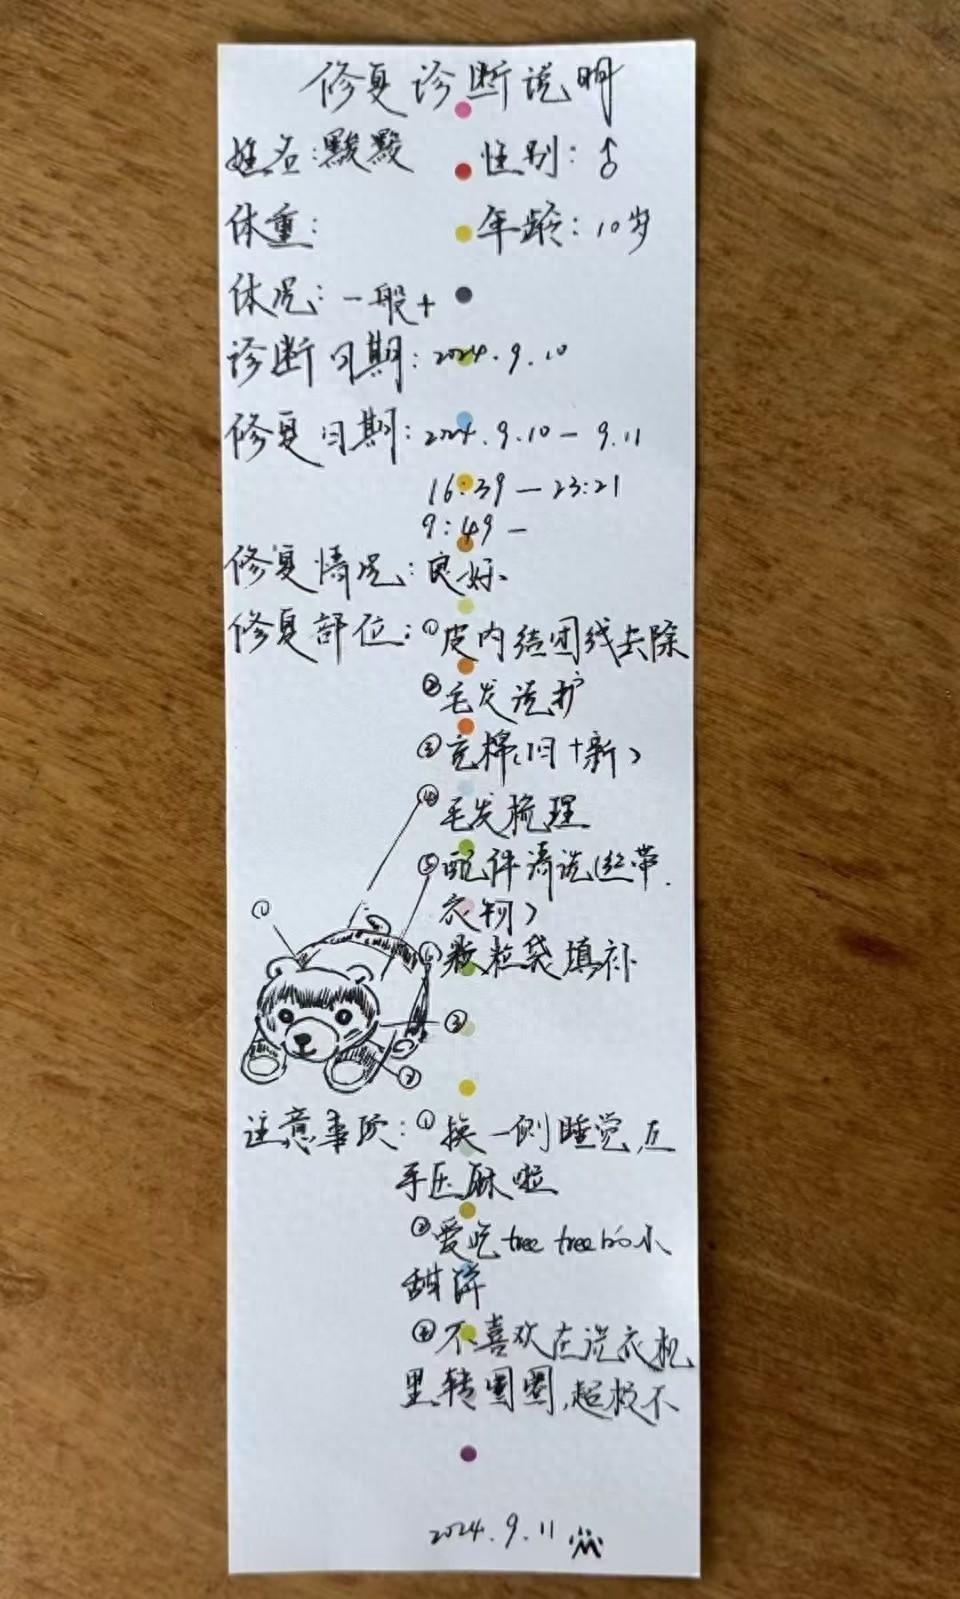 修复诊断说明
姓名:黢黢 性别:♂
体重: 年龄:10岁
体况:一般+
诊断日期:2024.9.10
修复日期:2024.9.10-9.11
16:39-23:21
9:49-
修复情况:良好
修复部位:①皮内结团线去除
②毛发洗护
③充棉(旧+新)
④毛发梳理
⑤配件清洗(丝带.
衣物)
⑥颗粒袋填补
①
③
②
注意事项:①换一侧睡觉,左
手压酥啦
②爱吃tree tree的小
甜饼
③不喜欢在洗衣机
里转圈圈,超极不
2024.9.11